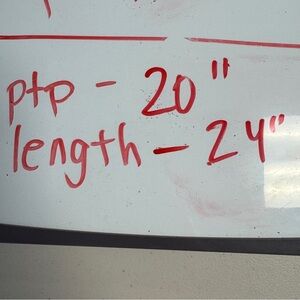 ptp - 20"
length - 24"